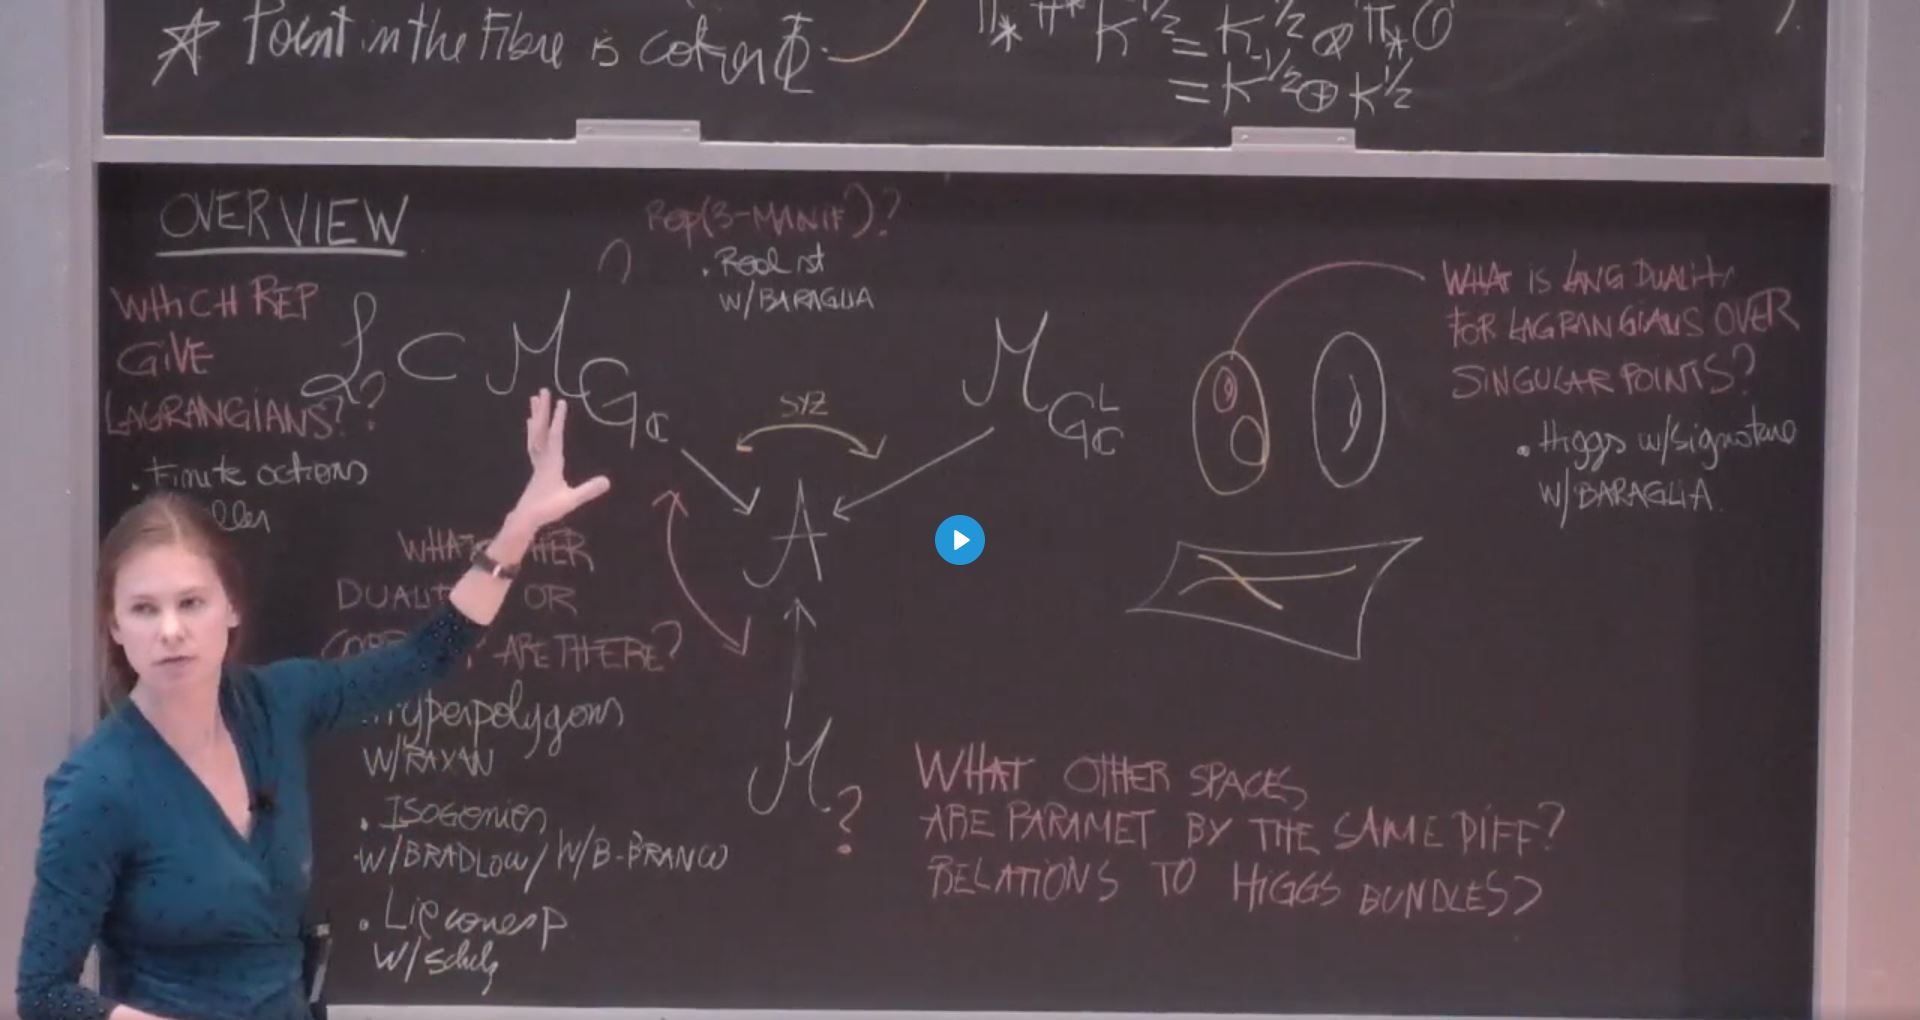 ☆ Point in the Fibre is coker Φ.
π_* π^* K^{1/2} = K^{1/2} ⊗ π_* O
= K^{-1/2} ⊕ K^{1/2}
OVERVIEW
Rep(3-MANIF)?
∩
W/BARAGLIA
WHICH REP
GIVE
LAGRANGIANS??
. Finite actions
L ⊂ M_{G_C}
M_{G^L_C}
SYZ
A
M_?
WHAT
DUALIT OR
ARE THERE?
Hyperpolygons
W/RAYAN
. Isogenies
W/BRADLOW/ W/B-BRANCO
. Lie corresp
WHAT IS LANG DUALITY
FOR LAGRANGIANS OVER
SINGULAR POINTS?
. Higgs w/signature
W/BARAGLIA.
WHAT OTHER SPACES
ARE PARAMET BY THE SAME DIFF?
RELATIONS TO HIGGS BUNDLES?